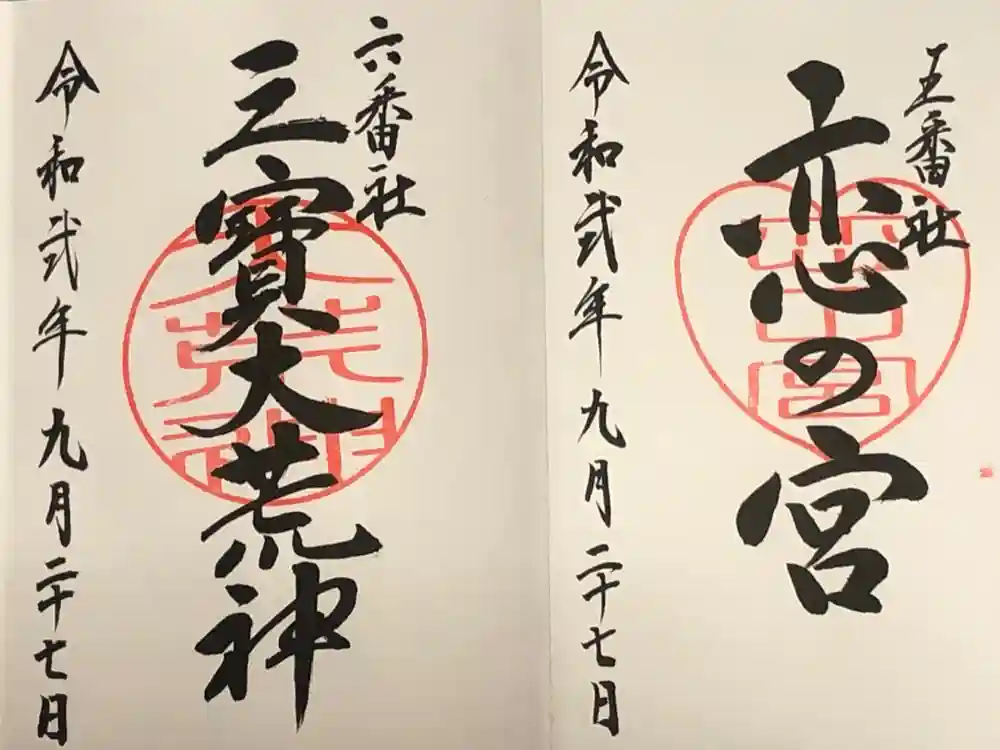 五番社
恋の宮
令和弐年九月二十七日
六番社
三寳大荒神
令和弐年九月二十七日